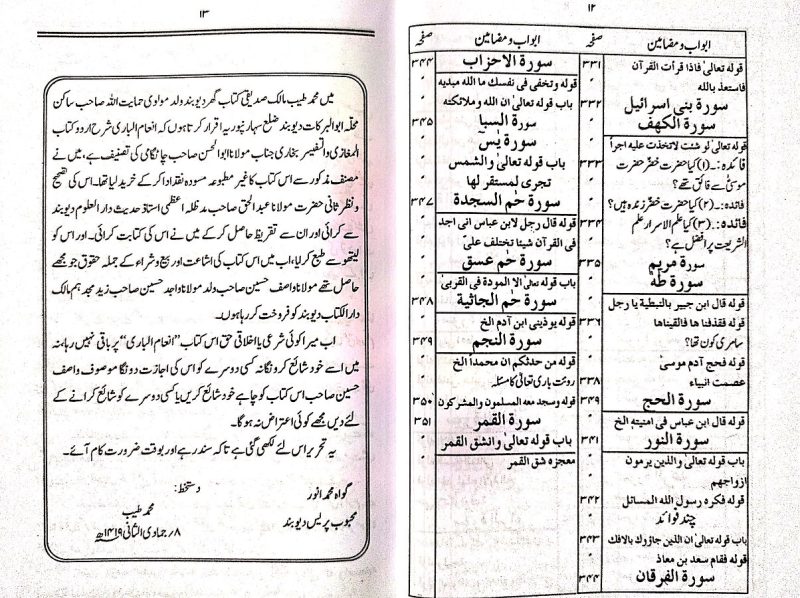 ۱۲
ابواب و مضامین صفحہ
قولہ تعالیٰ فاذا قرأت القرآن ۳۳۱
فاستعذ باللہ
سورة بنی اسرائیل ۳۳۲
سورة الکھف 〃
قولہ تعالیٰ لو شئت لاتخذت علیہ اجرا
فائدہ:۔(۱) کیا حضرت خضرؑ حضرت ۳۳۳
موسیٰؑ سے فائق تھے؟
فائدہ:۔(۲) کیا حضرت خضرؑ زندہ ہیں؟ 〃
فائدہ:۔(۳) کیا علم الاسرار علم ۳۳۴
الشریعت پر افضل ہے؟
سورة مریم ۳۳۵
سورة طٰہٰ 〃
قولہ قال ابن جبیر بالنبطیة یا رجل
قولہ فقذفنا ھا فالقیناھا ۳۳۶
سامری کون تھا؟ 〃
قولہ فحج آدم موسیٰ
عصمت انبیاء ۳۳۸
سورة الحج ۳۳۹
قولہ قال ابن عباس فی امنیتہ الخ
سورة النور ۳۴۱
باب قولہ تعالیٰ والذین یرمون 〃
ازواجھم
قولہ فکرہ رسول اللہ المسائل ۳۴۲
چند فوائد 〃
باب قولہ تعالیٰ ان الذین جاؤوک بالافک ۳۴۳
قولہ فقام سعد بن معاذ 〃
سورة الفرقان ۳۴۴
ابواب و مضامین صفحہ
سورة الاحزاب ۳۴۴
قولہ وتخفی فی نفسک ما اللہ مبدیہ 〃
باب قولہ تعالیٰ ان اللہ وملائکتہ 〃
سورة السبا ۳۴۵
سورة یٰسٓ 〃
باب قولہ تعالیٰ والشمس 〃
تجری لمستقر لھا
سورة حٰم السجدة ۳۴۷
قولہ قال رجل لابن عباس انی اجد
فی القرآن شیئا تختلف علیّ
سورة حٰم عسق 〃
باب قولہ تعالیٰ الا المودة فی القربیٰ 〃
سورة حم الجاثیة ۳۴۸
قولہ یوذینی ابن آدم الخ 〃
سورة النجم ۳۴۹
قولہ من حدثکم ان محمداً الخ 〃
رویت باری تعالیٰ کا مسئلہ 〃
قولہ وسجد معہ المسلمون والمشرکون ۳۵۰
سورة القمر ۳۵۱
باب قولہ تعالیٰ وانشق القمر 〃
معجزہ شق القمر 〃
۱۳
میں محمد طیب مالک صدیقی کتاب گھر دیوبند ولد مولوی حمایت اللہ صاحب ساکن
محلّہ ابوالبرکات دیوبند ضلع سہارنپور یہ اقرار کرتا ہوں کہ انعام الباری شرح اردو کتاب
المغازی والتفسیر بخاری جناب مولانا ابوالحسن صاحب چاٹگامی کی تصنیف ہے، میں نے
مصنف مذکور سے اس کتاب کا غیر مطبوعہ مسودہ نقد ادا کرکے خرید لیا تھا۔ اس کی تصحیح
ونظر ثانی حضرت مولانا عبدالحق صاحب مدظلہ اعظمی استاذ حدیث دارالعلوم دیوبند
سے کرائی اور ان سے تقریظ حاصل کرکے میں نے اس کی کتابت کرائی۔ اور اس کو
لیتھو سے طبع کرلیا، اب میں اس کتاب کی اشاعت اور بیع وشراء کے جملہ حقوق جو مجھے
حاصل تھے مولانا واصف حسین صاحب ولد مولانا واجد حسین صاحب زید مجدہم مالک
دارالکتاب دیوبند کو فروخت کررہا ہوں۔
اب میرا کوئی شرعی یا اخلاقی حق اس کتاب ”انعام الباری“ پر باقی نہیں رہا، نہ
میں اسے خود شائع کرونگا نہ کسی دوسرے کو اس کی اجازت دونگا موصوف واصف
حسین صاحب اس کتاب کو چاہے خود شائع کریں یا کسی دوسرے کو شائع کرانے کے
لئے دیں مجھے کوئی اعتراض نہ ہوگا۔
یہ تحریر اس لئے لکھی گئی ہے تاکہ سند رہے اور بوقت ضرورت کام آئے۔
دستخط:
گواہ محمد انور
محمد طیب
محبوب پریس دیوبند
۸؍ جمادی الثانی ۱۴۱۹ھ